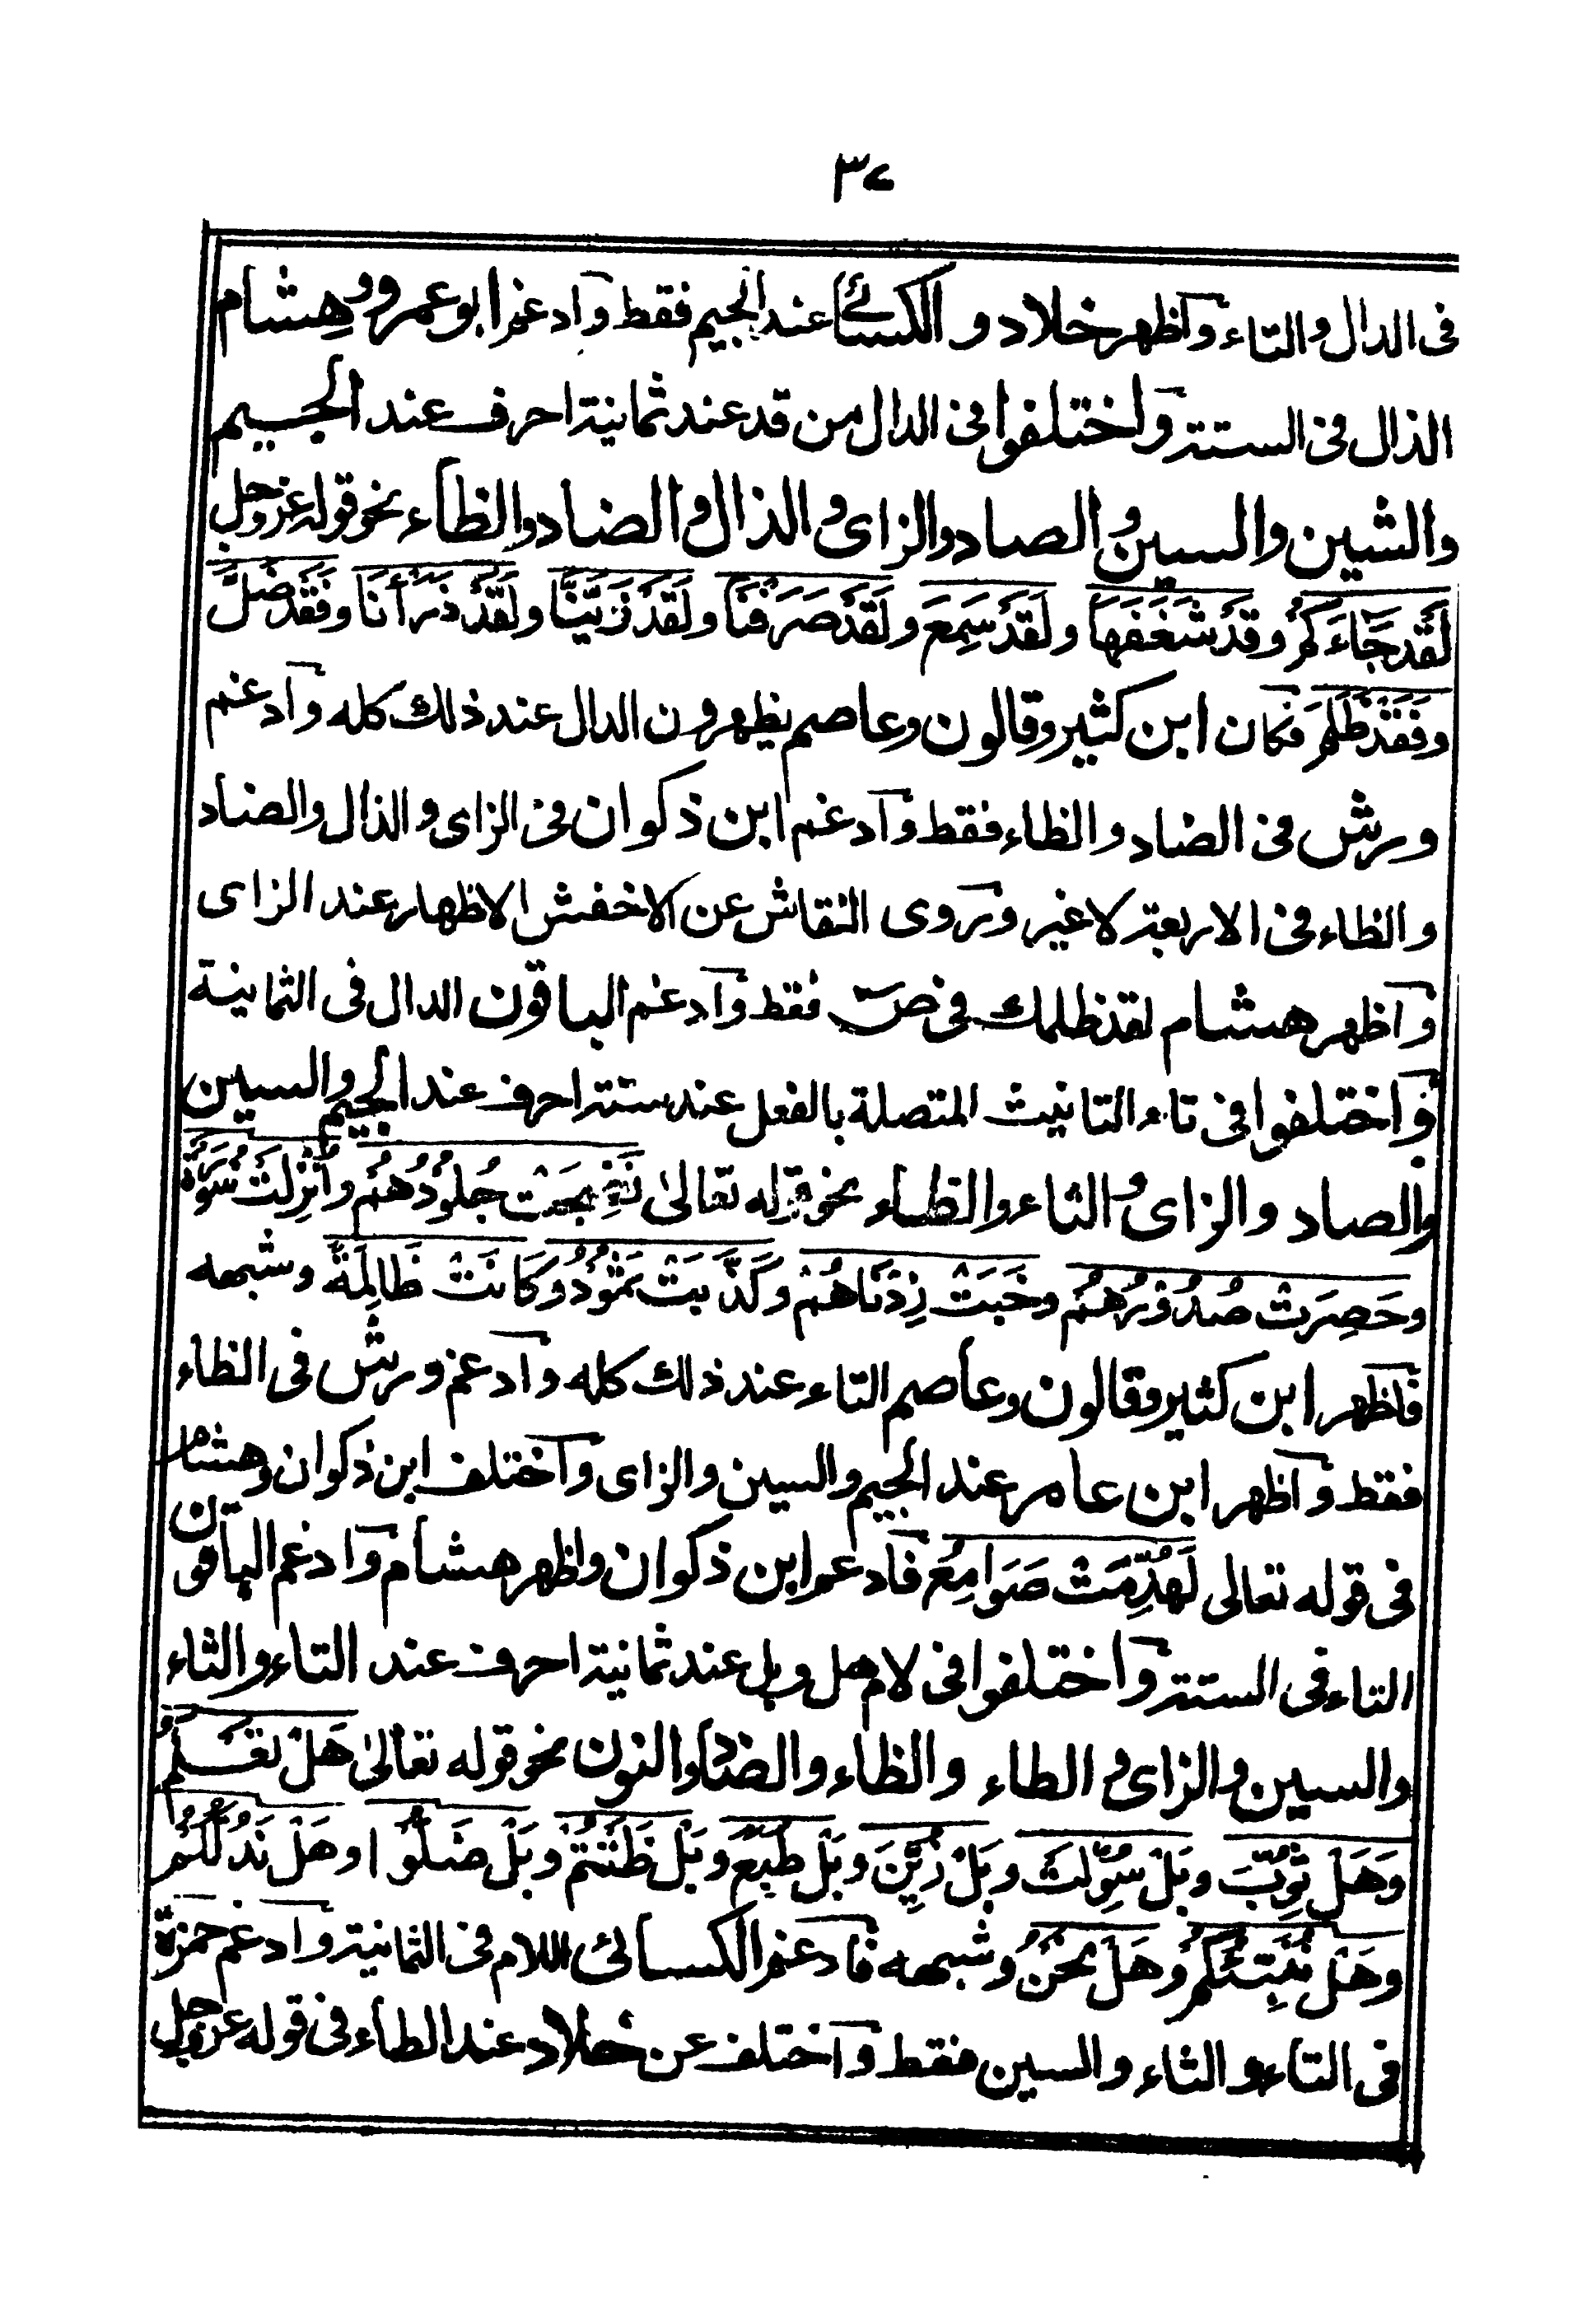 ٣٤
فى الدال والتاء واظهر خلاد والكسائى عند الجيم فقط وادغم ابو عمرو وهشام
الذال فى الستة واختلفوا فى الدال من قد عند ثمانية احرف عند الجيم
والشين والسين والصاد والزاى والذال والضاد والظاء نحو قوله عز وجل
لَقَدْ جَاءَكُمْ وقَدْ شَغَفَهَا ولَقَدْ سَمِعَ ولَقَدْ صَرَفْنَا ولَقَدْ زَيَّنَّا ولَقَدْ ذَرَأْنَا وفَقَدْ ضَلَّ
وفَقَدْ ظَلَمَ فكان ابن كثير وقالون وعاصم يظهرون الدال عند ذلك كله وادغم
ورش فى الضاد والظاء فقط وادغم ابن ذكوان فى الزاى والذال والضاد
والظاء فى الاربعة لا غير وروى النقاش عن الاخفش الاظهار عند الزاى
واظهر هشام لقد ظلمك فى ص فقط وادغم الباقون الدال فى الثمانية
واختلفوا فى تاء التانيث المتصلة بالفعل عند ستة احرف عند الجيم والسين
والصاد والزاى والثاء والظاء نحو قوله تعالى نَضِجَتْ جُلُودُهُمْ وأُنْزِلَتْ سُورَةٌ
وحَصِرَتْ صُدُورُهُمْ وخَبَتْ زِدْنَاهُمْ وكَذَّبَتْ ثَمُودُ وكَانَتْ ظَالِمَةً وشبهه
فاظهر ابن كثير وقالون وعاصم التاء عند ذلك كله وادغم ورش فى الظاء
فقط واظهر ابن عامر عند الجيم والسين والزاى واختلف ابن ذكوان وهشام
فى قوله تعالى لَهُدِّمَتْ صَوَامِعُ فادغم ابن ذكوان واظهر هشام وادغم الباقون
التاء فى الستة واختلفوا فى لام هل وبل عند ثمانية احرف عند التاء والثاء
والسين والزاى والطاء والظاء والضاد والنون نحو قوله تعالى هَلْ تَعْلَمُ
وَهَلْ ثُوِّبَ وبَلْ سَوَّلَتْ وبَلْ زُيِّنَ وبَلْ طَبَعَ وبَلْ ظَنَنْتُمْ وبَلْ ضَلُّوا وهَلْ نَدُلُّكُمْ
وهَلْ نُنَبِّئُكُمْ وهَلْ نَحْنُ وشبهه فادغم الكسائى اللام فى الثمانية وادغم حمزة
فى التاء والثاء والسين فقط واختلف عن خلاد عند الطاء فى قوله عز وجل